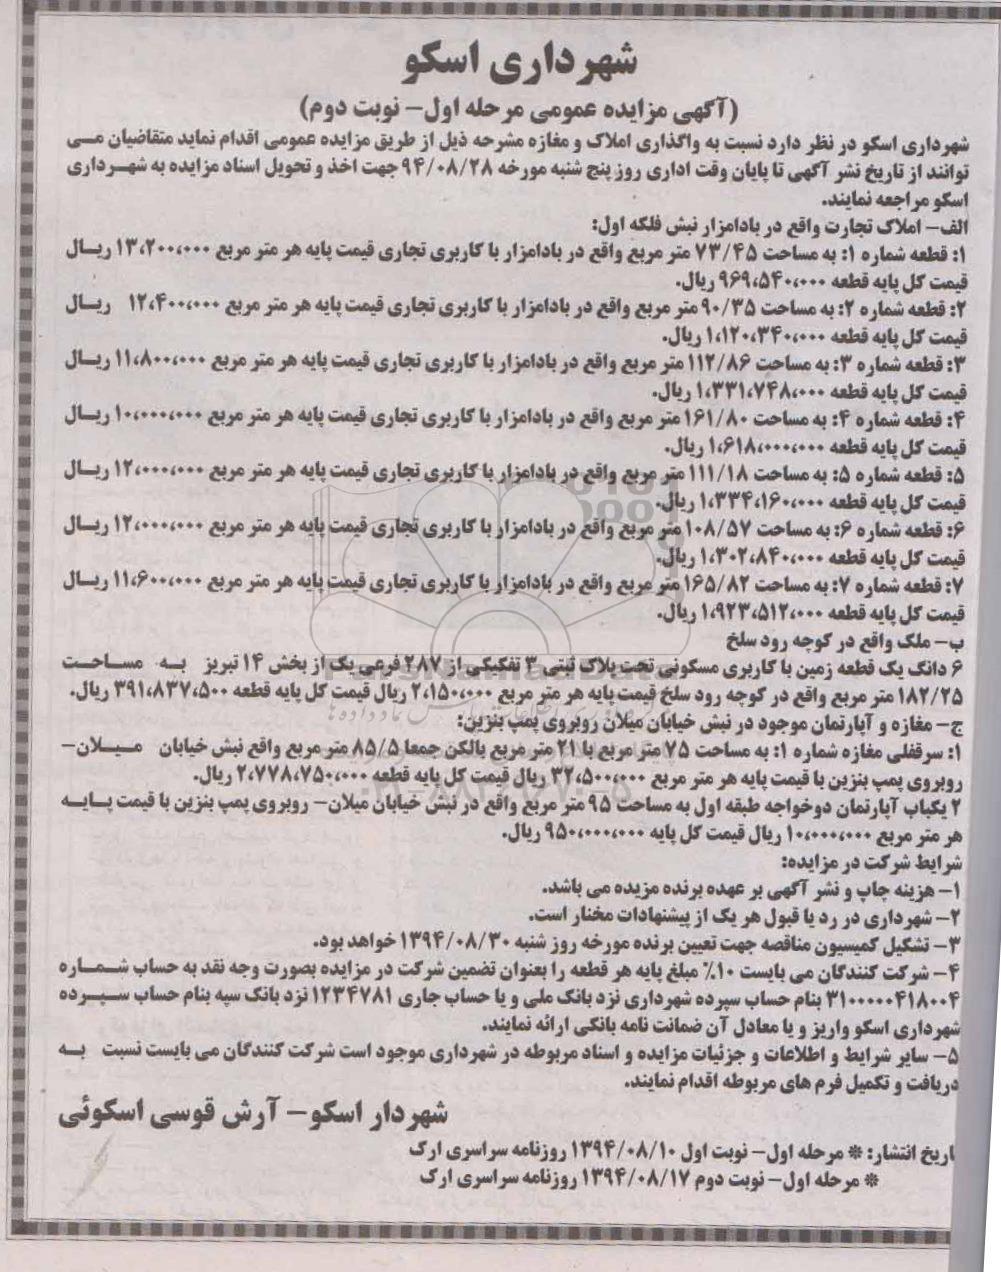 شهرداری اسکو
(آگهی مزایده عمومی مرحله اول- نوبت دوم)
شهرداری اسکو در نظر دارد نسبت به واگذاری املاک و مغازه مشرحه ذیل از طریق مزایده عمومی اقدام نماید متقاضیان مـی
توانند از تاریخ نشر آگهی تا پایان وقت اداری روز پنج شنبه مورخه ۹۴/۰۸/۲۸ جهت اخذ و تحویل اسناد مزایده به شهـرداری
اسکو مراجعه نمایند.
الف- املاک تجارت واقع در بادامزار نبش فلکه اول:
۱: قطعه شماره ۱: به مساحت ۷۳/۴۵ متر مربع واقع در بادامزار با کاربری تجاری قیمت پایه هر متر مربع ۱۳،۲۰۰،۰۰۰ ریـال
قیمت کل پایه قطعه ۹۶۹،۵۴۰،۰۰۰ ریال.
۲: قطعه شماره ۲: به مساحت ۹۰/۳۵ متر مربع واقع در بادامزار با کاربری تجاری قیمت پایه هر متر مربع ۱۲،۴۰۰،۰۰۰ ریـال
قیمت کل پایه قطعه ۱،۱۲۰،۳۴۰،۰۰۰ ریال.
۳: قطعه شماره ۳: به مساحت ۱۱۲/۸۶ متر مربع واقع در بادامزار با کاربری تجاری قیمت پایه هر متر مربع ۱۱،۸۰۰،۰۰۰ ریـال
قیمت کل پایه قطعه ۱،۳۳۱،۷۴۸،۰۰۰ ریال.
۴: قطعه شماره ۴: به مساحت ۱۶۱/۸۰ متر مربع واقع در بادامزار با کاربری تجاری قیمت پایه هر متر مربع ۱۰،۰۰۰،۰۰۰ ریـال
قیمت کل پایه قطعه ۱،۶۱۸،۰۰۰،۰۰۰ ریال.
۵: قطعه شماره ۵: به مساحت ۱۱۱/۱۸ متر مربع واقع در بادامزار با کاربری تجاری قیمت پایه هر متر مربع ۱۲،۰۰۰،۰۰۰ ریـال
قیمت کل پایه قطعه ۱،۳۳۴،۱۶۰،۰۰۰ ریال.
۶: قطعه شماره ۶: به مساحت ۱۰۸/۵۷ متر مربع واقع در بادامزار با کاربری تجاری قیمت پایه هر متر مربع ۱۲،۰۰۰،۰۰۰ ریـال
قیمت کل پایه قطعه ۱،۳۰۲،۸۴۰،۰۰۰ ریال.
۷: قطعه شماره ۷: به مساحت ۱۶۵/۸۲ متر مربع واقع در بادامزار با کاربری تجاری قیمت پایه هر متر مربع ۱۱،۶۰۰،۰۰۰ ریـال
قیمت کل پایه قطعه ۱،۹۲۳،۵۱۲،۰۰۰ ریال.
ب- ملک واقع در کوچه رود سلخ
۶ دانگ یک قطعه زمین با کاربری مسکونی تحت پلاک ثبتی ۳ تفکیکی از ۲۸۷ فرعی یک از بخش ۱۴ تبریز به مسـاحـت
۱۸۲/۲۵ متر مربع واقع در کوچه رود سلخ قیمت پایه هر متر مربع ۲،۱۵۰،۰۰۰ ریال قیمت کل پایه قطعه ۳۹۱،۸۳۷،۵۰۰ ریال.
ج- مغازه و آپارتمان موجود در نبش خیابان میلان روبروی پمپ بنزین:
۱: سرقفلی مغازه شماره ۱: به مساحت ۷۵ متر مربع با ۲۱ متر مربع بالکن جمعا ۸۵/۵ متر مربع واقع نبش خیابان میـلان-
روبروی پمپ بنزین با قیمت پایه هر متر مربع ۳۲،۵۰۰،۰۰۰ ریال قیمت کل پایه قطعه ۲،۷۷۸،۷۵۰،۰۰۰ ریال.
۲ یکباب آپارتمان دوخواجه طبقه اول به مساحت ۹۵ متر مربع واقع در نبش خیابان میلان- روبروی پمپ بنزین با قیمت پـایـه
هر متر مربع ۱۰،۰۰۰،۰۰۰ ریال قیمت کل پایه ۹۵۰،۰۰۰،۰۰۰ ریال.
شرایط شرکت در مزایده:
۱- هزینه چاپ و نشر آگهی بر عهده برنده مزیده می باشد.
۲- شهرداری در رد یا قبول هر یک از پیشنهادات مختار است.
۳- تشکیل کمیسیون مناقصه جهت تعیین برنده مورخه روز شنبه ۱۳۹۴/۰۸/۳۰ خواهد بود.
۴- شرکت کنندگان می بایست ۱۰٪ مبلغ پایه هر قطعه را بعنوان تضمین شرکت در مزایده بصورت وجه نقد به حساب شـمـاره
۳۱۰۰۰۰۰۴۱۸۰۰۴ بنام حساب سپرده شهرداری نزد بانک ملی و یا حساب جاری ۱۲۳۴۷۸۱ نزد بانک سپه بنام حساب سـپـرده
شهرداری اسکو واریز و یا معادل آن ضمانت نامه بانکی ارائه نمایند.
۵- سایر شرایط و اطلاعات و جزئیات مزایده و اسناد مربوطه در شهرداری موجود است شرکت کنندگان می بایست نسبت به
دریافت و تکمیل فرم های مربوطه اقدام نمایند.
شهردار اسکو- آرش قوسی اسکوئی
اریخ انتشار: * مرحله اول- نوبت اول ۱۳۹۴/۰۸/۱۰ روزنامه سراسری ارک
* مرحله اول- نوبت دوم ۱۳۹۴/۰۸/۱۷ روزنامه سراسری ارک